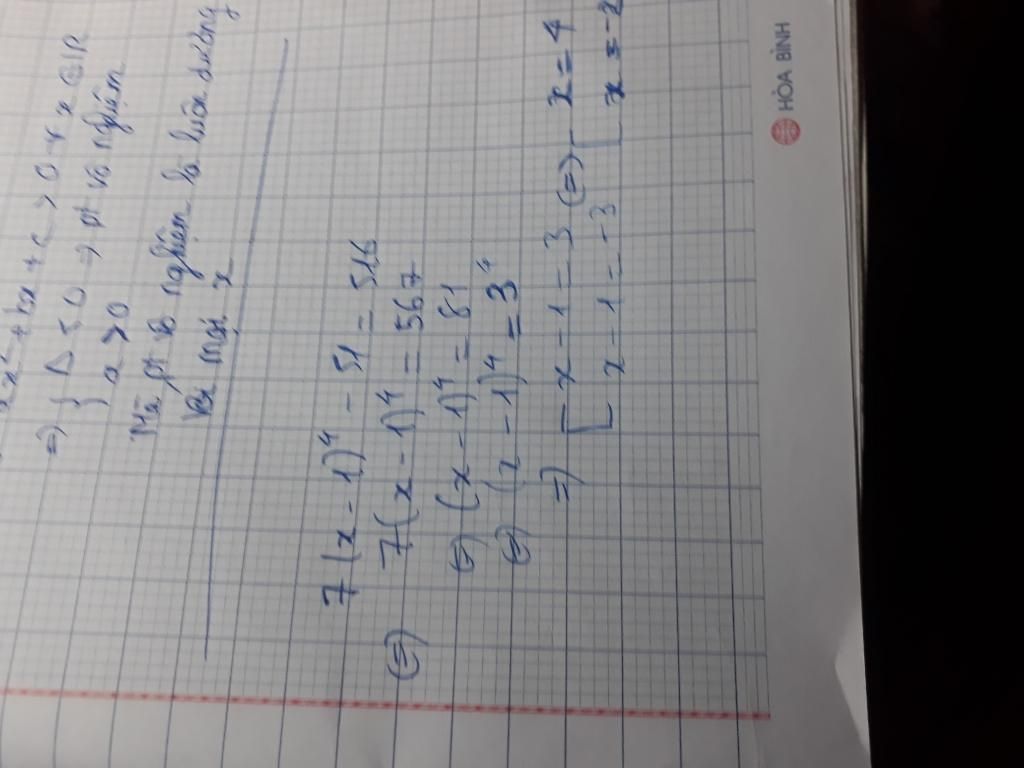 ax² + bx + c > 0 ∀ x ∈ IR
=) { Δ < 0 => pt vô nghiệm
a > 0
Mà pt vô nghiệm là luôn dương
với mọi x
7(x - 1)⁴ - 51 = 516
(=) 7(x - 1)⁴ = 567
(=) (x - 1)⁴ = 81
(=) (x - 1)⁴ = 3⁴
=) [ x - 1 = 3 (=) [ x = 4
x - 1 = -3 x = -2
HÒA BÌNH